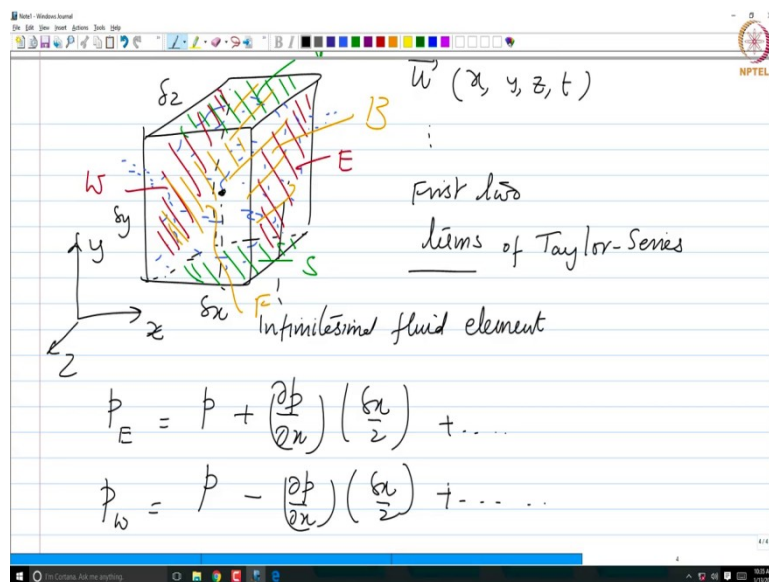 Note1 - Windows Journal
File Edit View Insert Actions Tools Help
B I
NPTEL
δz
W
δy
y
x
Z
δx
B
E
S
F
u⃗ (x, y, z, t)
⋮
First two
terms of Taylor-Series
Infinitesimal fluid element
p_E = p + (∂p/∂x) (δx/2) + ....
p_W = p - (∂p/∂x) (δx/2) + ......
4/4
4
I'm Cortana. Ask me anything.